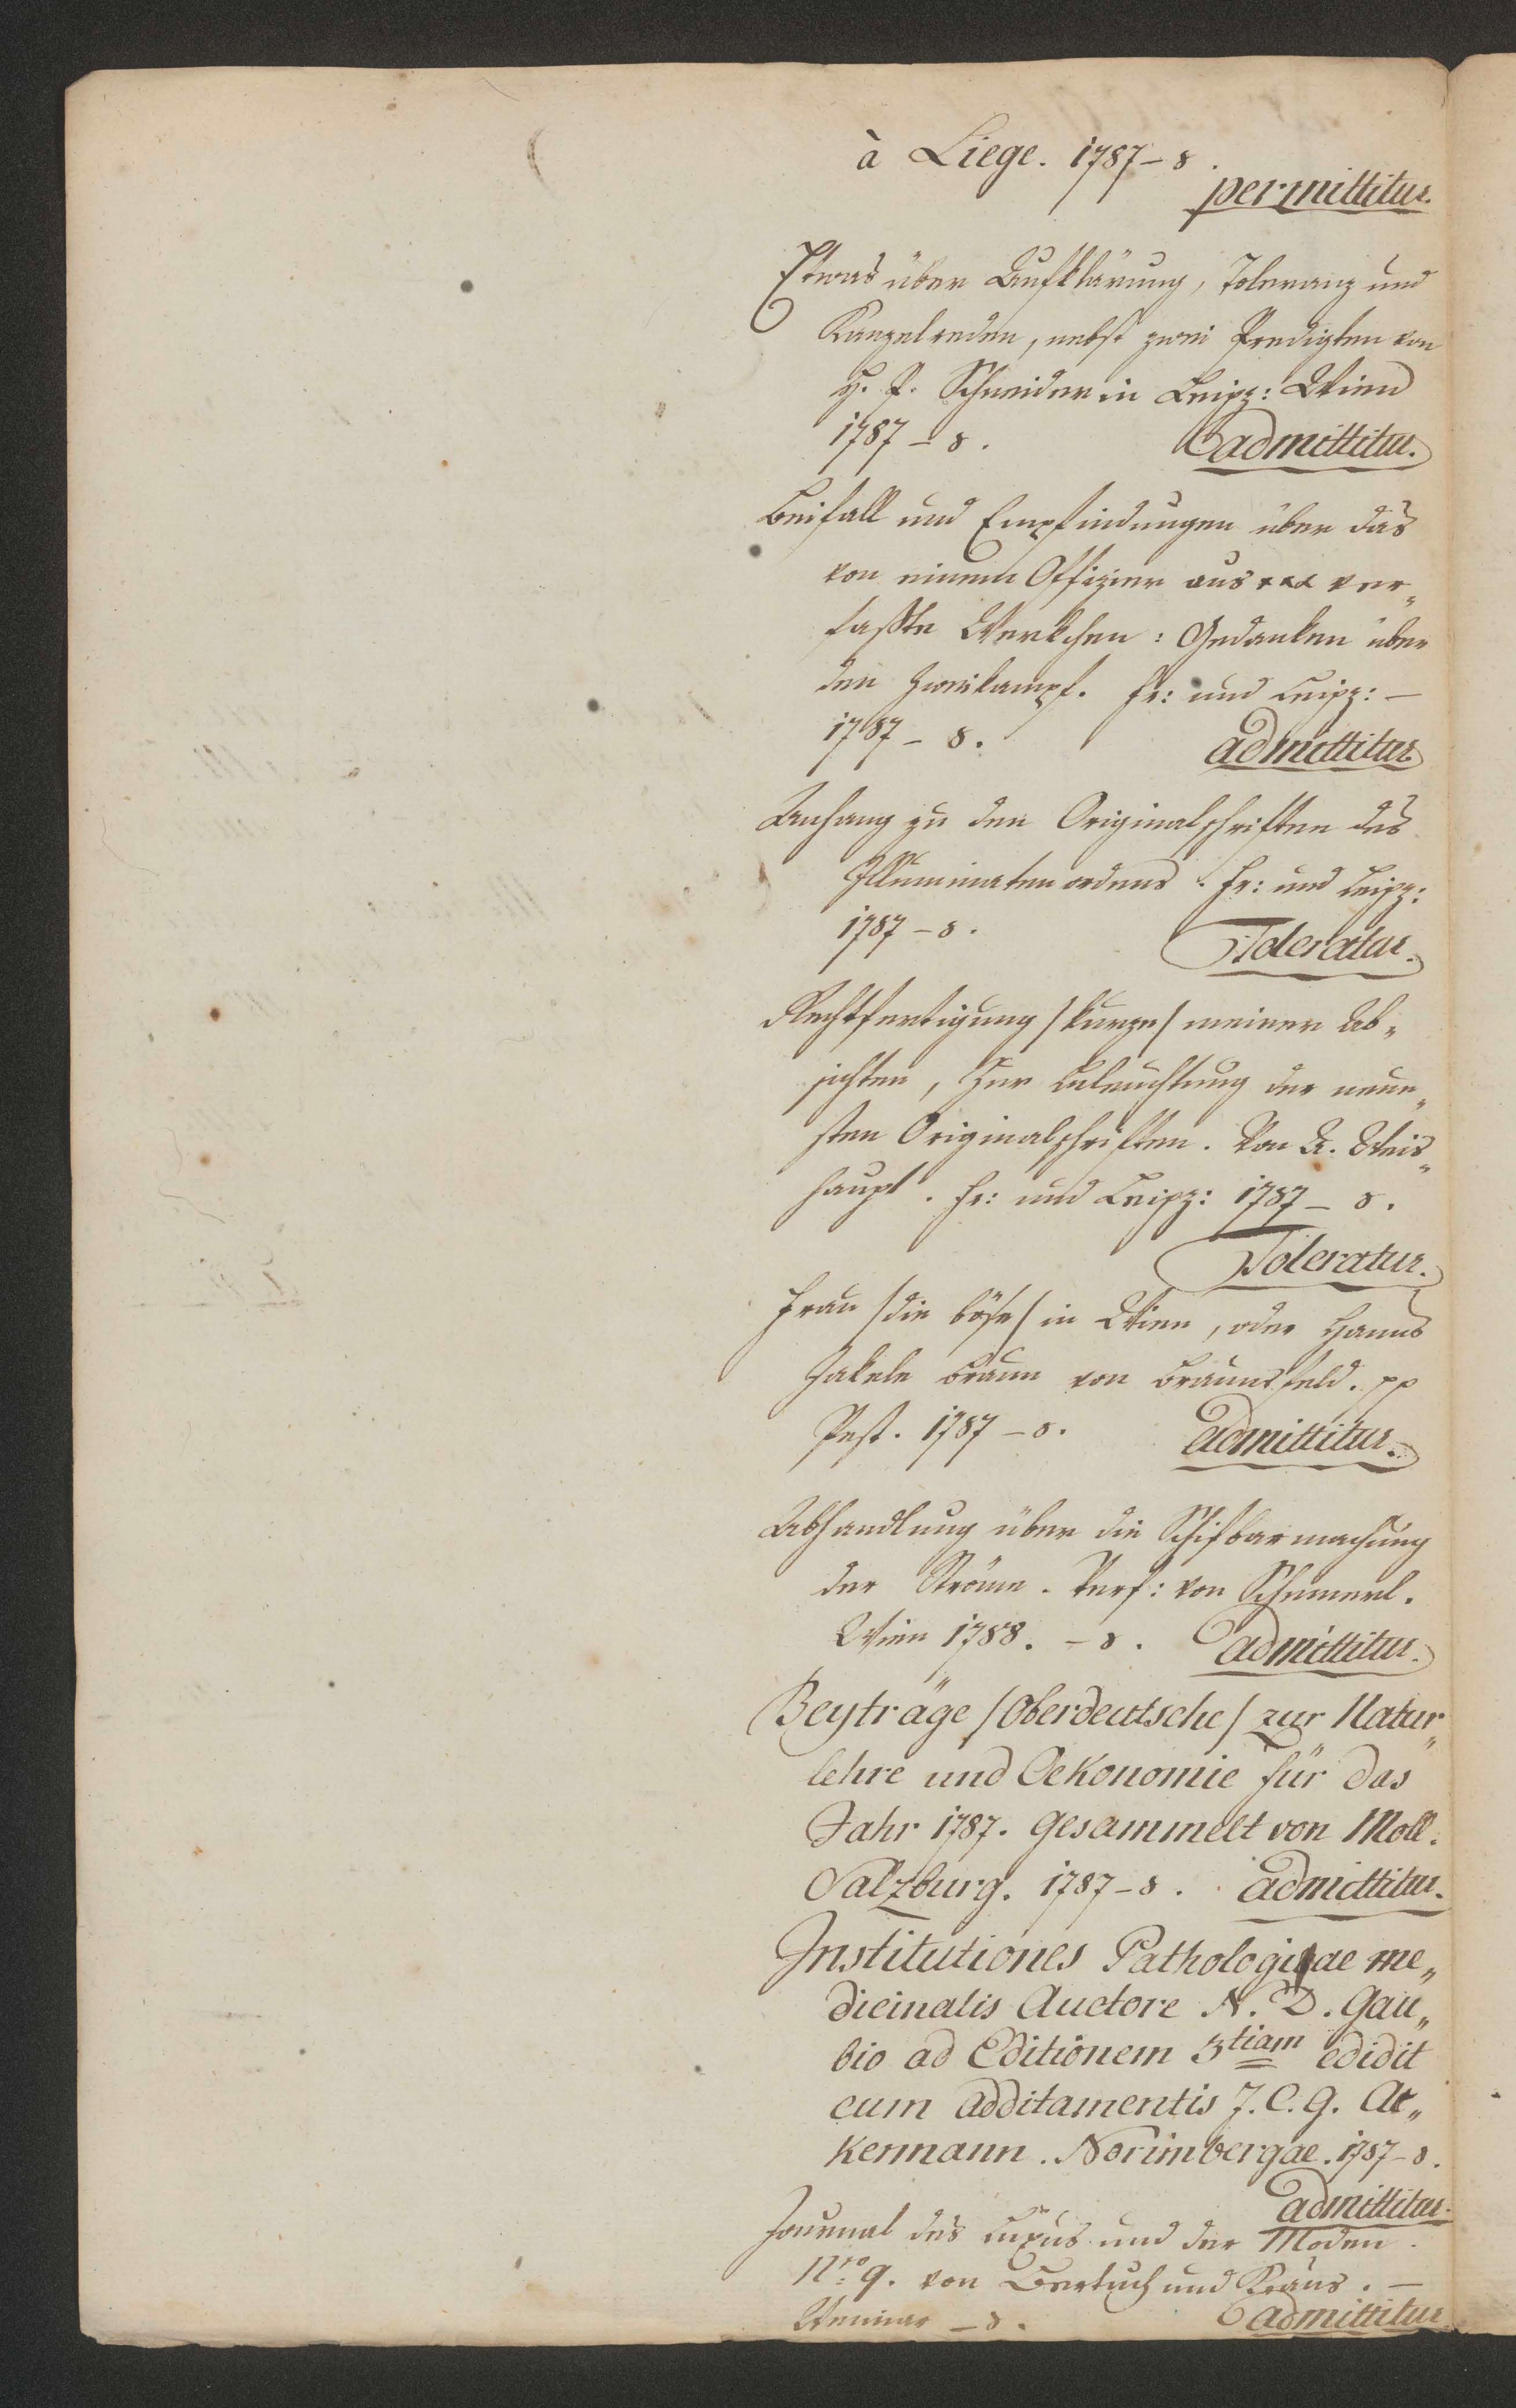 à Liege. 1787 – 8.
permittitur.
Etwas über Aufklärung, Toleranz und
Kanzelreden, nebst zwei Predigten von
H. P. Schneider in Leipz: Wien
1787 – 8. admittitur.
Beifall und Empfindungen über das
von einem Offizier aus xxx ver„
faßte Werkchen: Gedanken über
den Zweikampf. Fr: und Leipz: –
1787 – 8. admittitur
Anhang zu den Originalschriften des
Illuminatenordens. Fr: und Leipz:
1787 – 8. Toleratur.
Rechtfertigung /kurze/ meiner Ab„
sichten, Zur Beleuchtung der neue„
sten Originalschriften. Von A. Weis„
haupt. Fr: und Leipz: 1787 – 8.
Toleratur.
Frau /die böse/ in Wien, oder Hanns
Jakele Braun von Braunsfeld. pp
Pest. 1787 – 8. admittitur.
Abhandlung über die Schifbarmachung
der Ströme. Verf: von Schemerl.
Wien 1788. – 8. admittitur.
Beyträge /Oberdeutsche/ zur Natur„
lehre und Oekonomie für das
Jahr 1787. gesammelt von Moll.
Salzburg. 1787 – 8. admittitur.
Institutiones Pathologiae me„
dicinalis Auctore N. D. Gau„
bio ad Editionem 3tiam edidit
cum additamentis J. C. G. Ac„
kermann. Norimbergae. 1787 – 8.
admittitur.
Journal des Luxus und der Moden.
Nro 9. von Bertuch und Kraus. –
Weimar – 8. admittitur